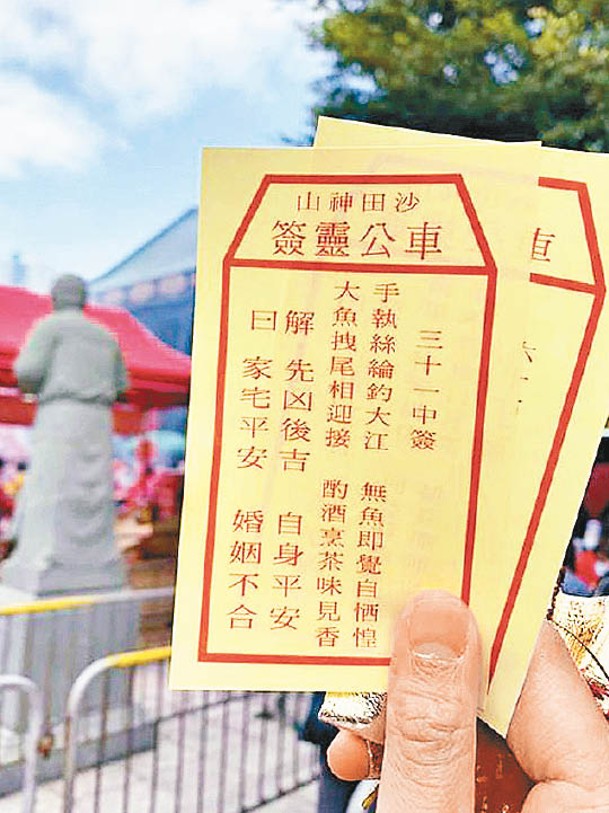 沙田神山
車公靈簽
三十一中簽
手執絲綸釣大江 無魚即覺自栖惶
大魚拽尾相迎接 酌酒烹茶味見香
解 先凶後吉 自身平安
曰 家宅平安 婚姻不合
車